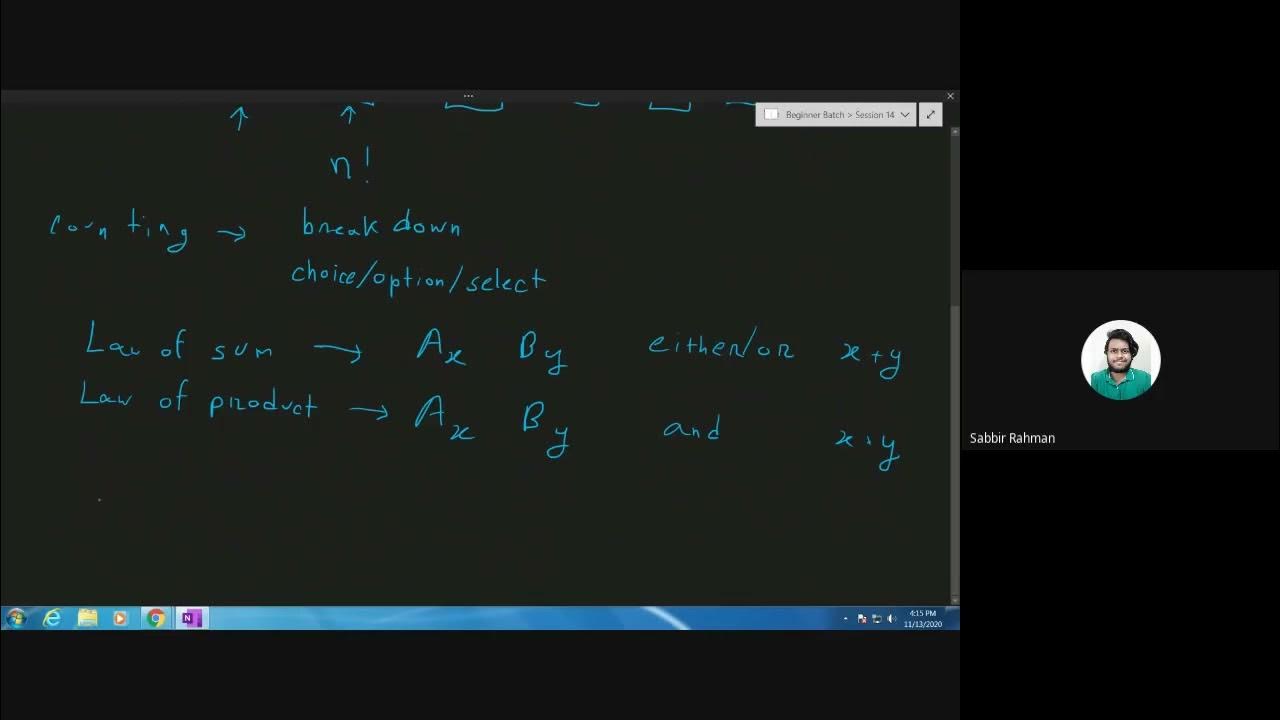 Beginner Batch > Session 14
n!
Counting → break down
choice/option/select
Law of sum → A x B y either/or x + y
Law of product → A x B y and x . y
Sabbir Rahman
4:15 PM
11/13/2020